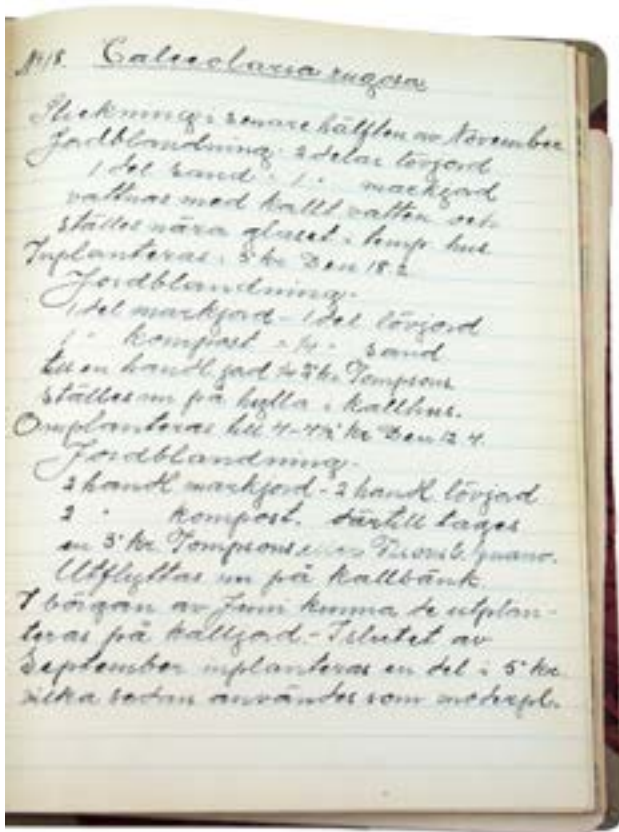 N:18. Calceolaria rugosa
Stickning: senare hälften av November
Jordblandning: 2 delar lövjord
1 del sand - 1 " markjord
vattnas med kallt vatten och
ställes nära glaset i temp. hus.
Inplanteras i 3" kr. Den 18.2
Jordblandning.
1 del markjord - 1 del lövjord
1 " kompost - " sand
till en handl. jord kr. Tompsons
ställes på hylla i kallhus.
Omplanteras till 4-4½" kr. Den 12.4.
Jordblandning.
2 handl markjord - 2 handl lövjord
2 " kompost. därtill tages
en 3" kr. Tompsons guano.
Utflyttas på kallbänk.
I början av Juni kunna de utplan-
teras på kalljord. - I slutet av
September inplanteras en del i 5" kr.
vilka sedan användes som moderpl.